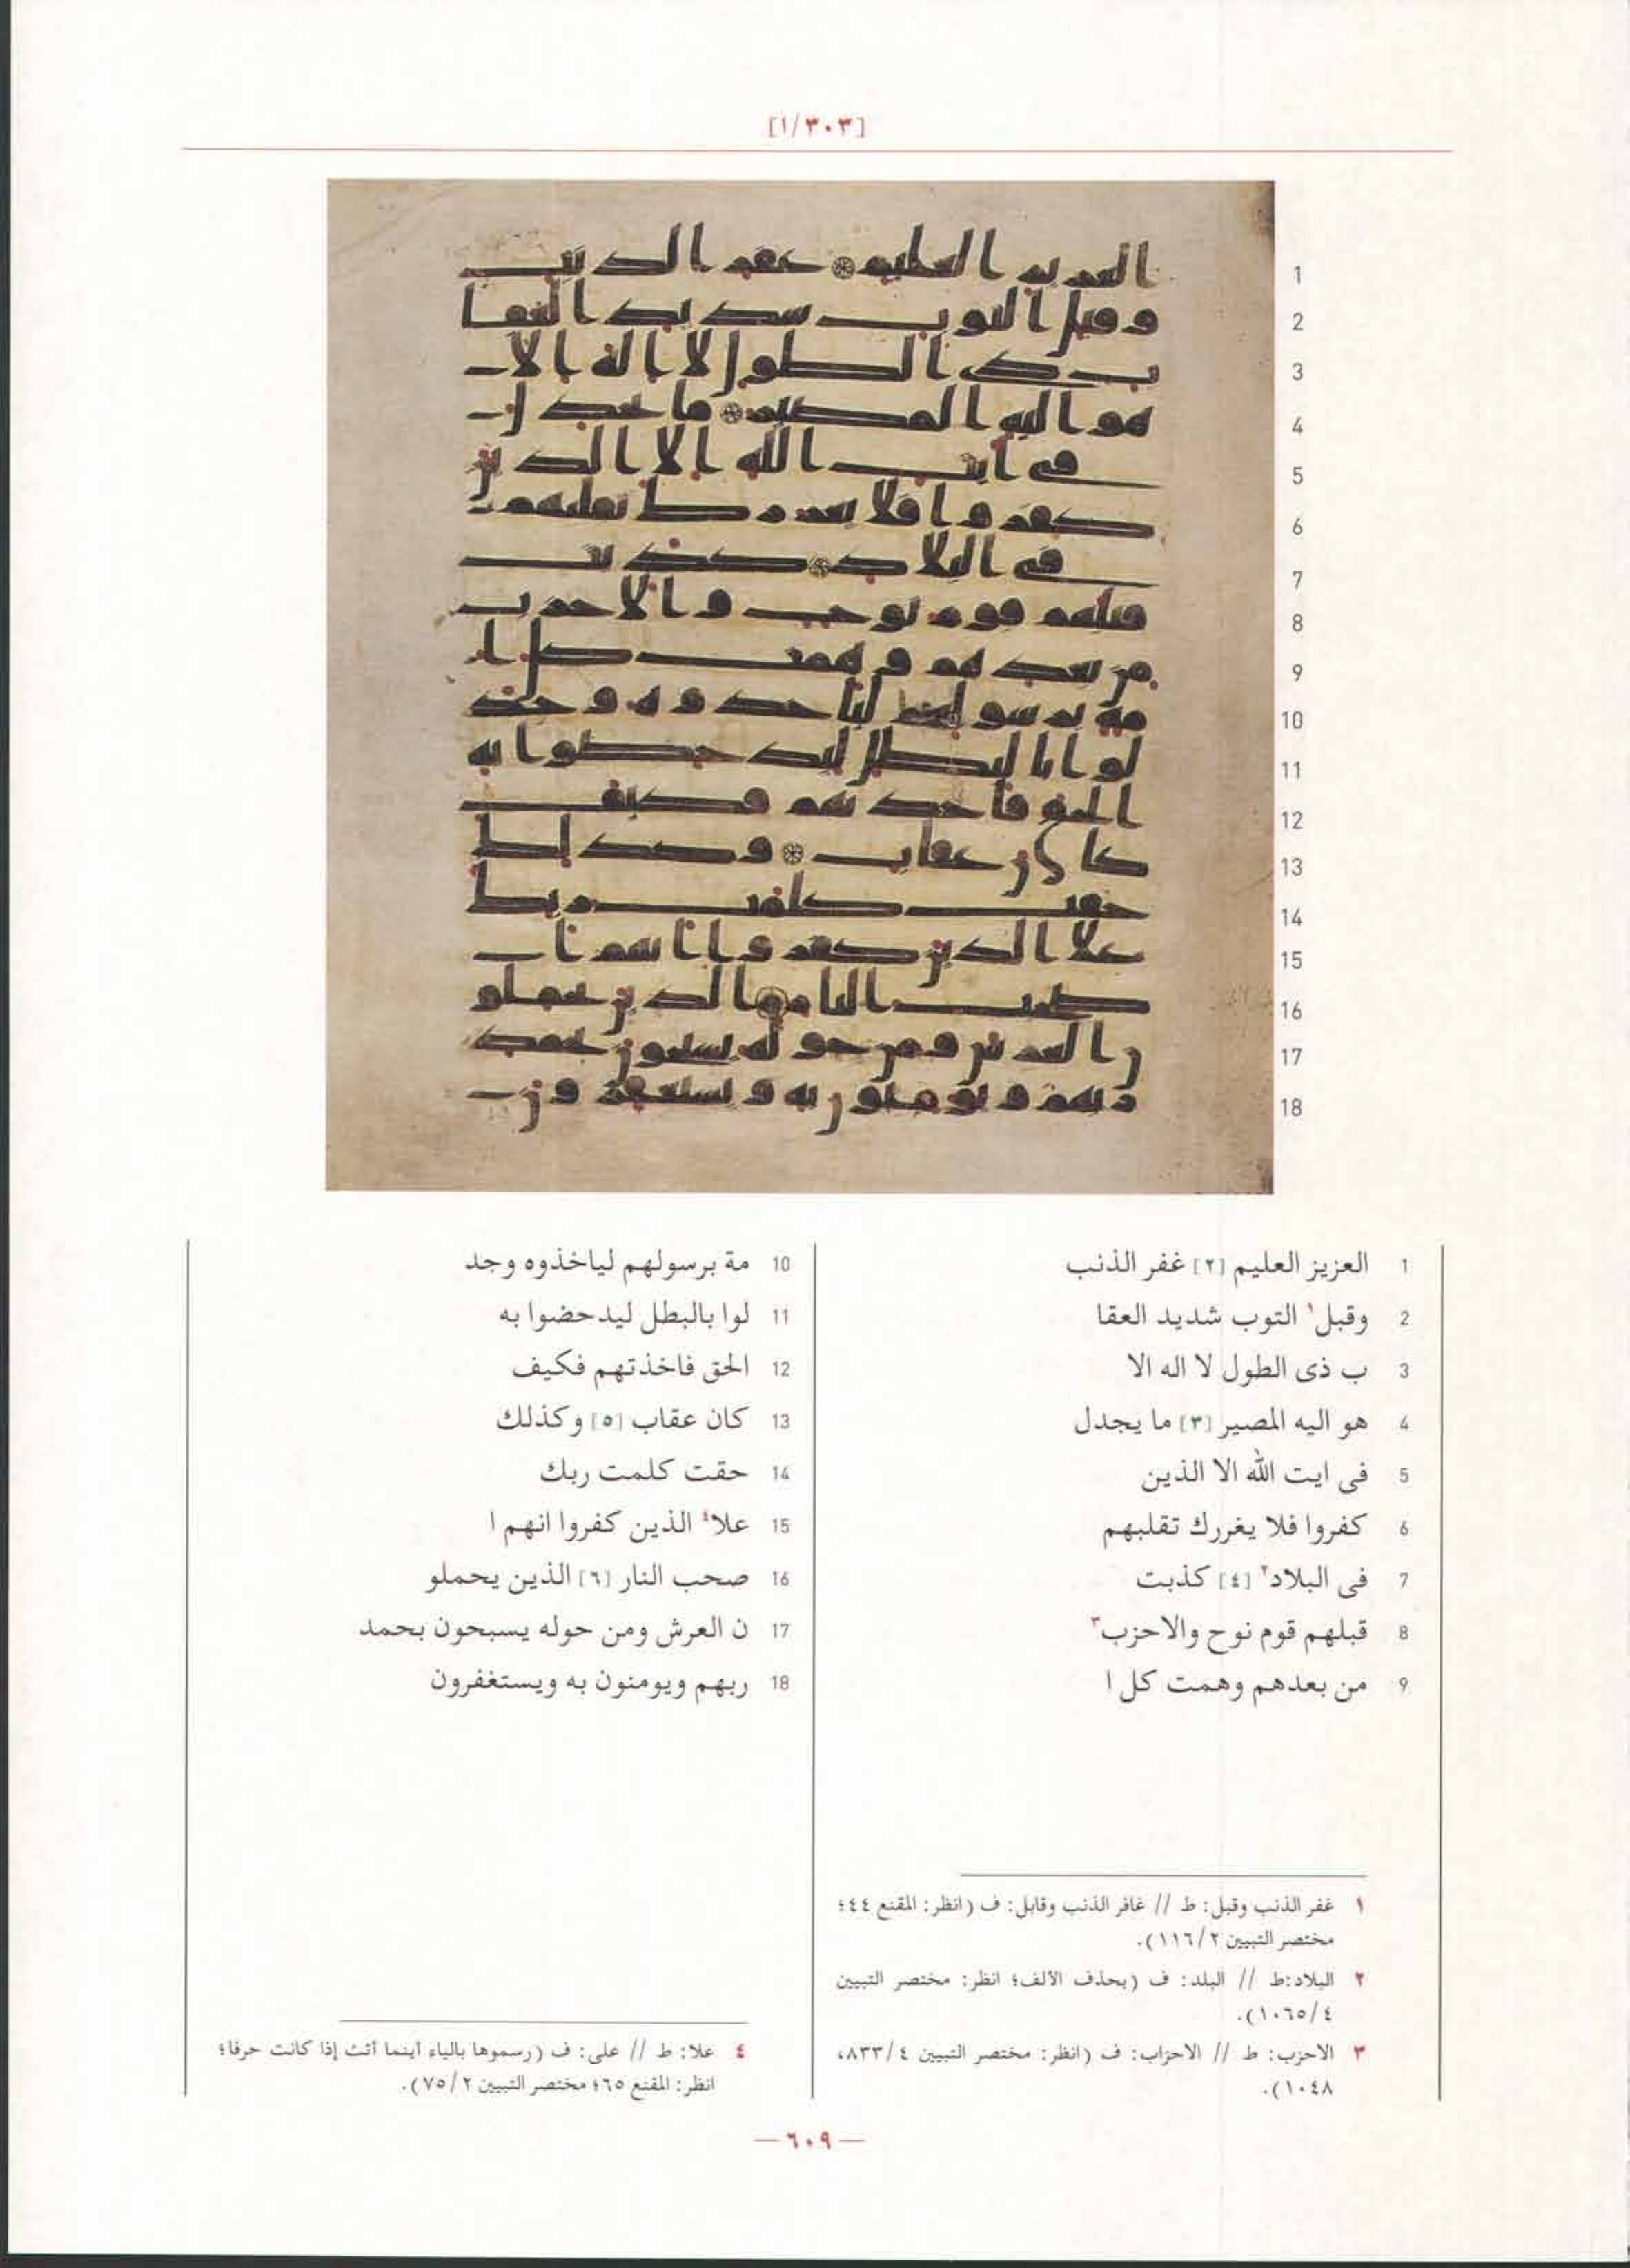 [١/٣٠٣]
1 العزيز العليم [٢] غفر الذنب
2 وقبل١ التوب شديد العقا
3 ب ذى الطول لا اله الا
4 هو اليه المصير [٣] ما يجدل
5 فى ايت الله الا الذين
6 كفروا فلا يغررك تقلبهم
7 فى البلاد٢ [٤] كذبت
8 قبلهم قوم نوح والاحزب٣
9 من بعدهم وهمت كل ا
10 مة برسولهم لياخذوه وجد
11 لوا بالبطل ليدحضوا به
12 الحق فاخذتهم فكيف
13 كان عقاب [٥] وكذلك
14 حقت كلمت ربك
15 علا٤ الذين كفروا انهم ا
16 صحب النار [٦] الذين يحملو
17 ن العرش ومن حوله يسبحون بحمد
18 ربهم ويومنون به ويستغفرون
١ غفر الذنب وقبل: ط // غافر الذنب وقابل: ف (انظر: المقنع ٤٤؛
مختصر التبيين ١١٦/٢).
٢ البلاد:ط // البلد: ف (بحذف الألف؛ انظر: مختصر التبيين
١٠٦٥/٤).
٣ الاحزب: ط // الاحزاب: ف (انظر: مختصر التبيين ٨٣٣/٤،
١٠٤٨).
٤ علا: ط // على: ف (رسموها بالياء أينما أتت إذا كانت حرفا؛
انظر: المقنع ٦٥؛ مختصر التبيين ٧٥/٢).
— ٦٠٩ —